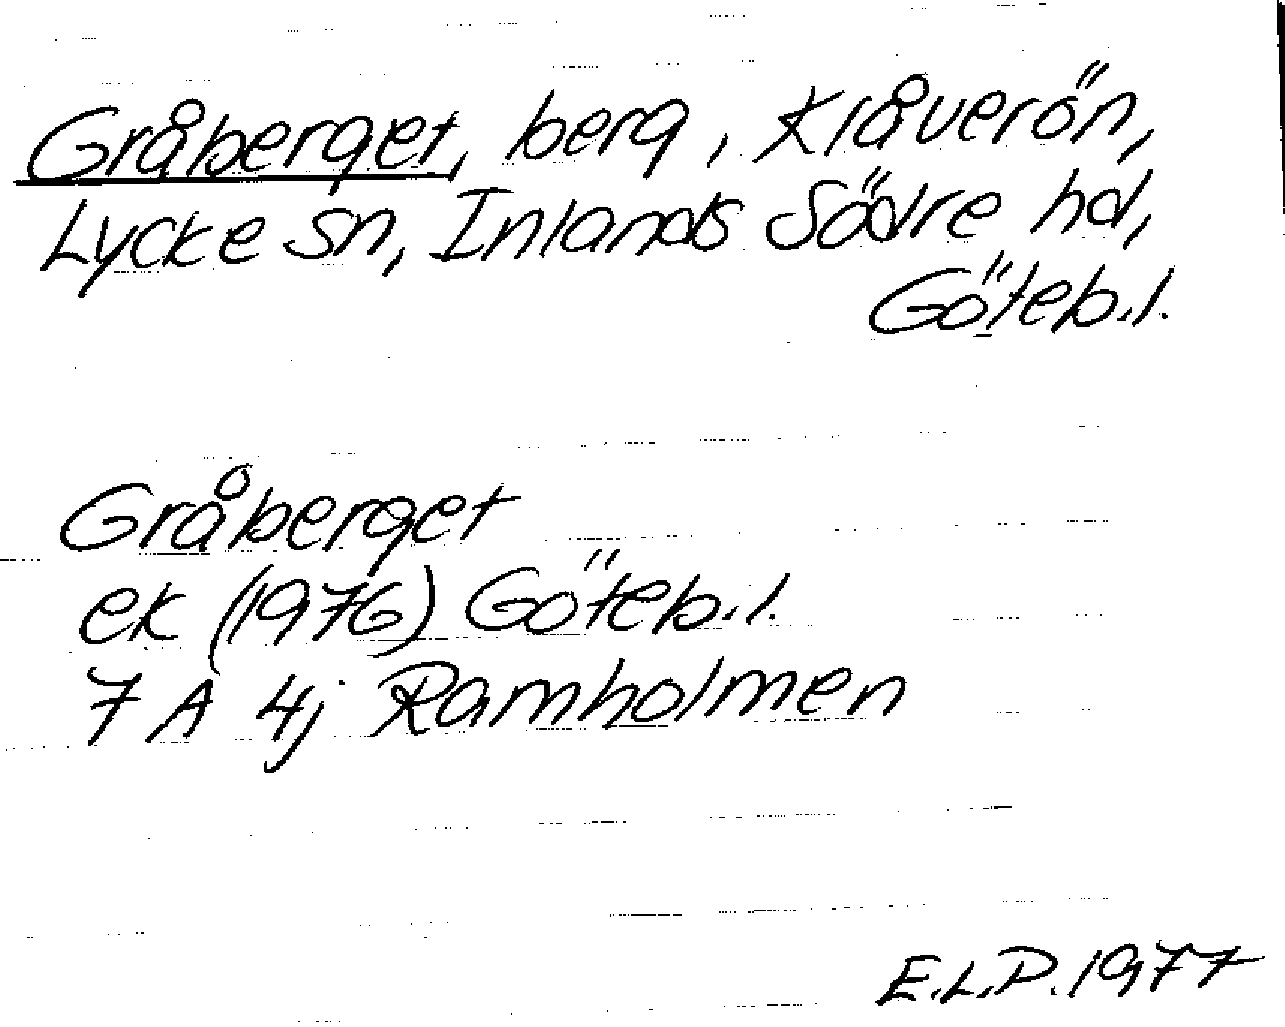 Gråberget, berg, Klåverön,
Lycke sn, Inlands Södre hd,
Göteb.l.
Gråberget
ek (1976) Göteb.l.
7 A 4j Ramholmen
E.L.P. 1977